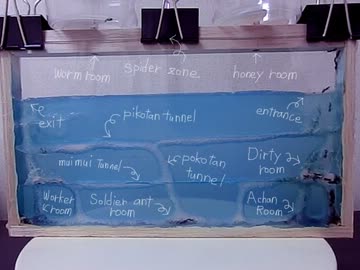 worm room
spider zone
honey room
exit
pikotan tunnel
entrance
muimui tunnel
pokotan
tunnel
Dirty
room
Worker
room
Soldier ant
room
Achan
Room